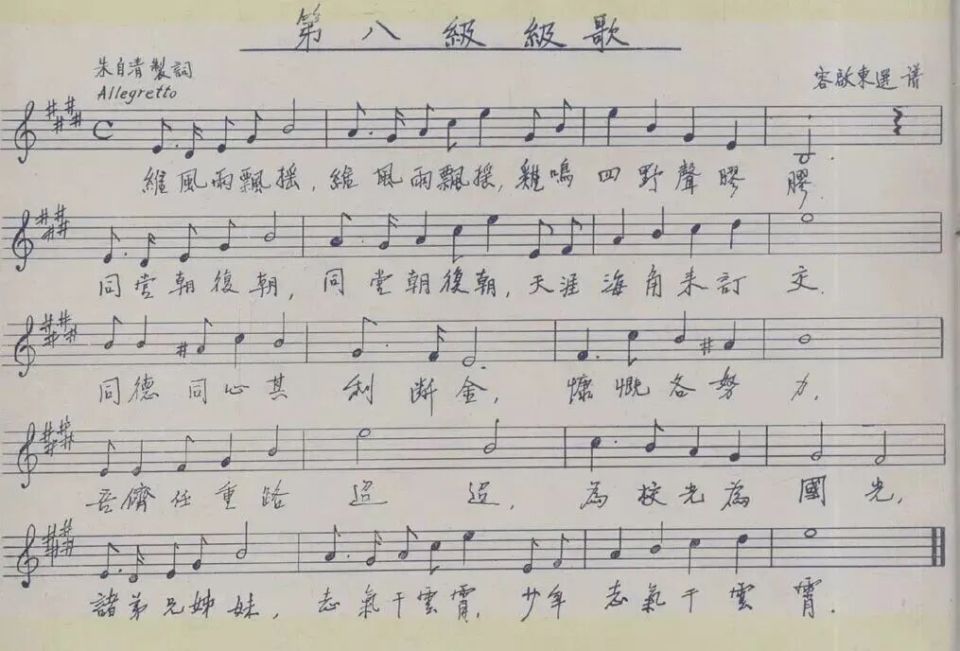 第八級級歌
朱自清製詞
Allegretto
容啟東選譜
維風雨飄搖，維風雨飄搖，雞鳴四野聲膠膠．
同堂朝復朝，同堂朝復朝，天涯海角來訂交．
同德同心其利断金，慷慨各努力．
吾儕任重路迢迢，為校光為國光，
諸弟兄姊妹，志氣干雲霄．少年志氣干雲霄．